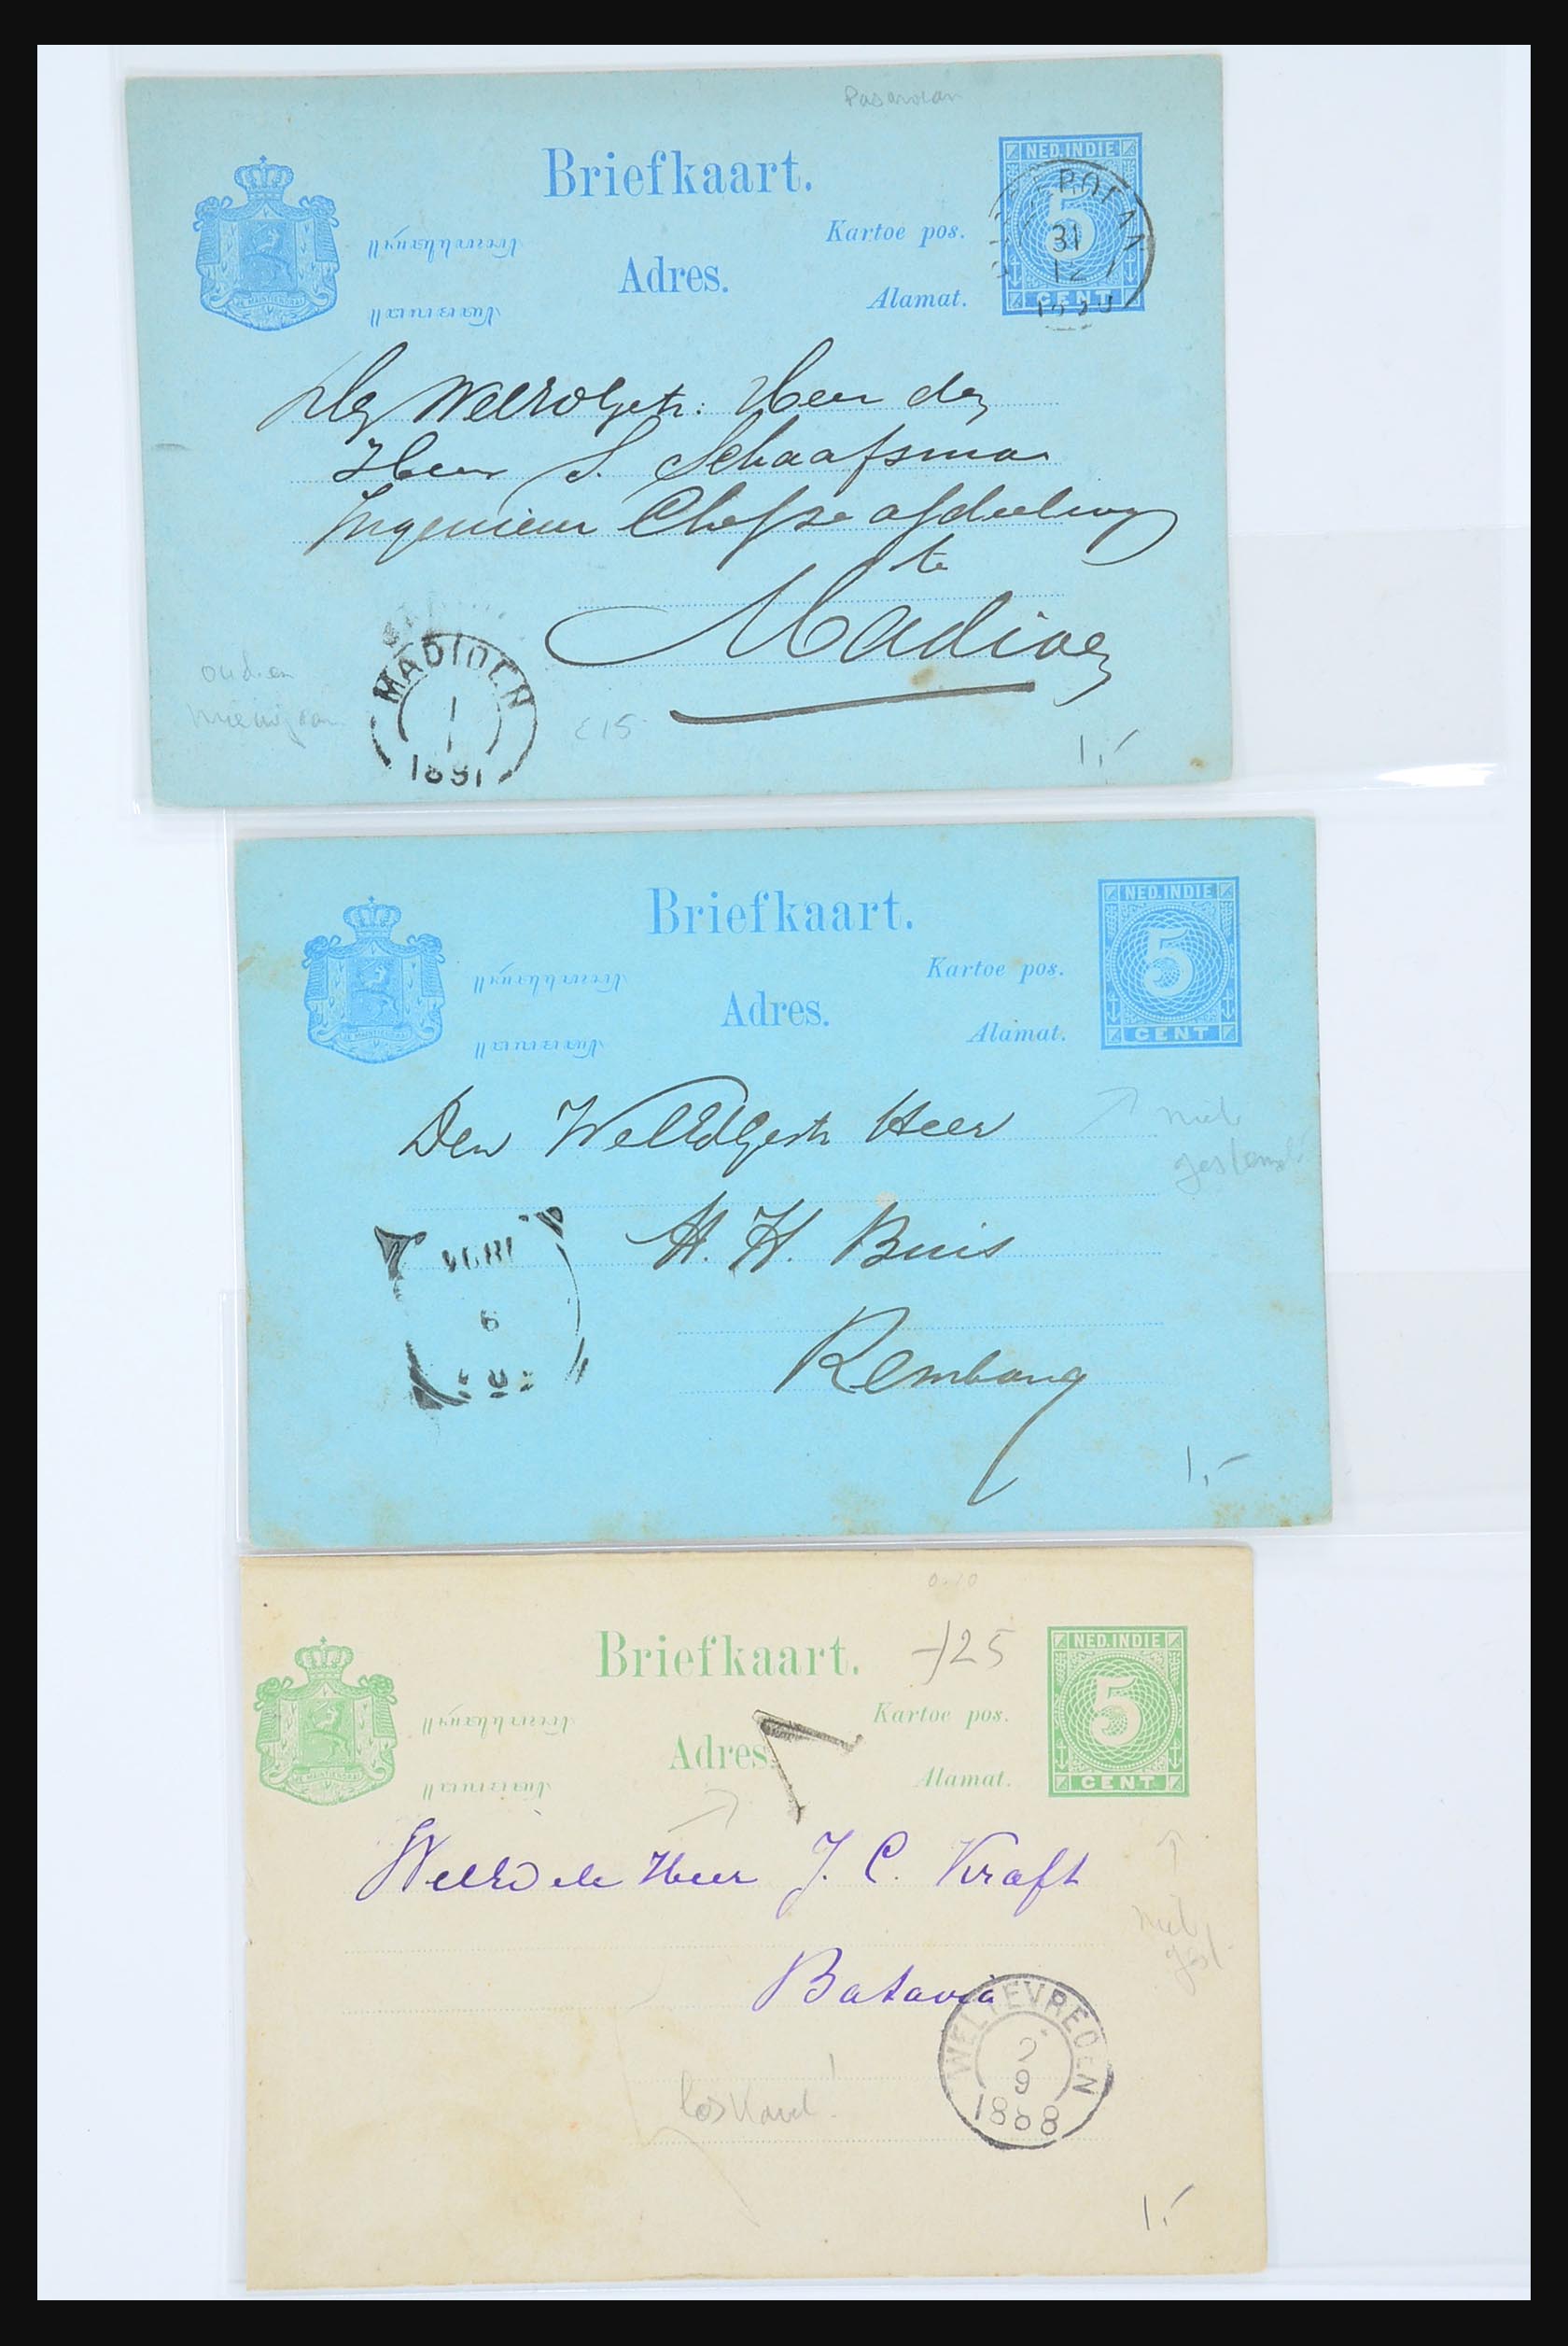 Pasaroean
Briefkaart.
NED. INDIE
5
CENT
Kartoe pos.
Adres.
Alamat.
JE MAINTIENDRAI
31
12
WelEdGestr: Heer den
Heer S. Schaafsma
Ingenieur Chef 2e afdeeling
te
Madioen
MADIOEN
1
1
1891
oud en
nieuwjaar
€15
1,-
Briefkaart.
NED. INDIE
5
CENT
Kartoe pos.
Adres.
Alamat.
niet
gestempeld
Den WelEdGestr Heer
H. H. Buis
Rembang
1891
6
1,-
0.10
Briefkaart.
+25
NED. INDIE
5
CENT
Kartoe pos.
Adres.
Alamat.
JE MAINTIENDRAI
WelEd. Heer J. C. Kraft
Batavia
niet
gest.
WELTEVREDEN
2
9
1888
losse kaart!
1,-